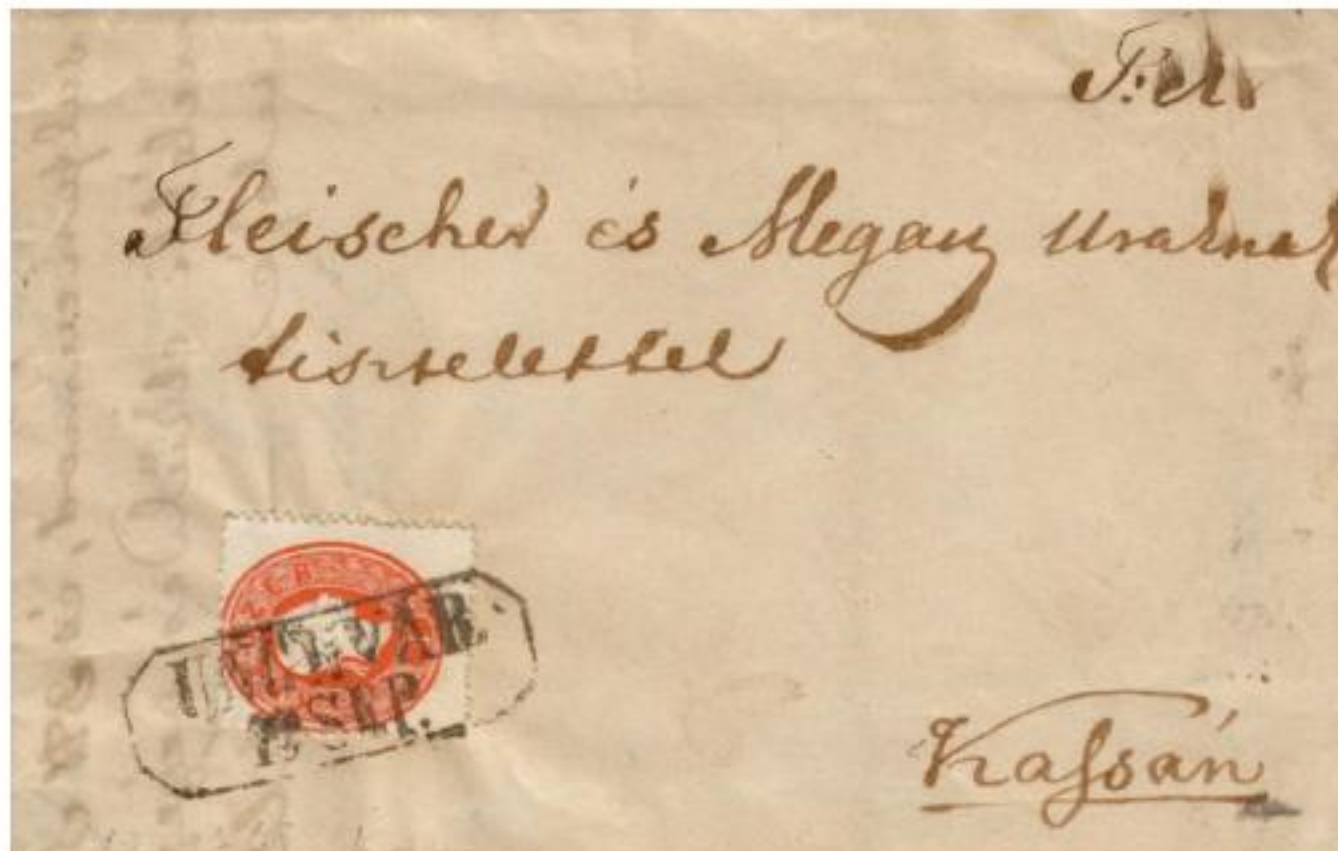 Fleischer és Megay uraknak
tisztelettel
UNGVÁR.
SEP.
Kaſsán